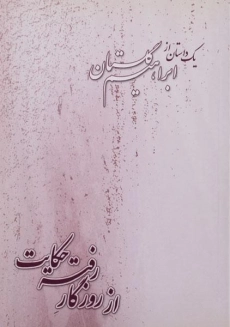 یک داستان از
ابراهیم گلستان
از روزگار رفته حکایت